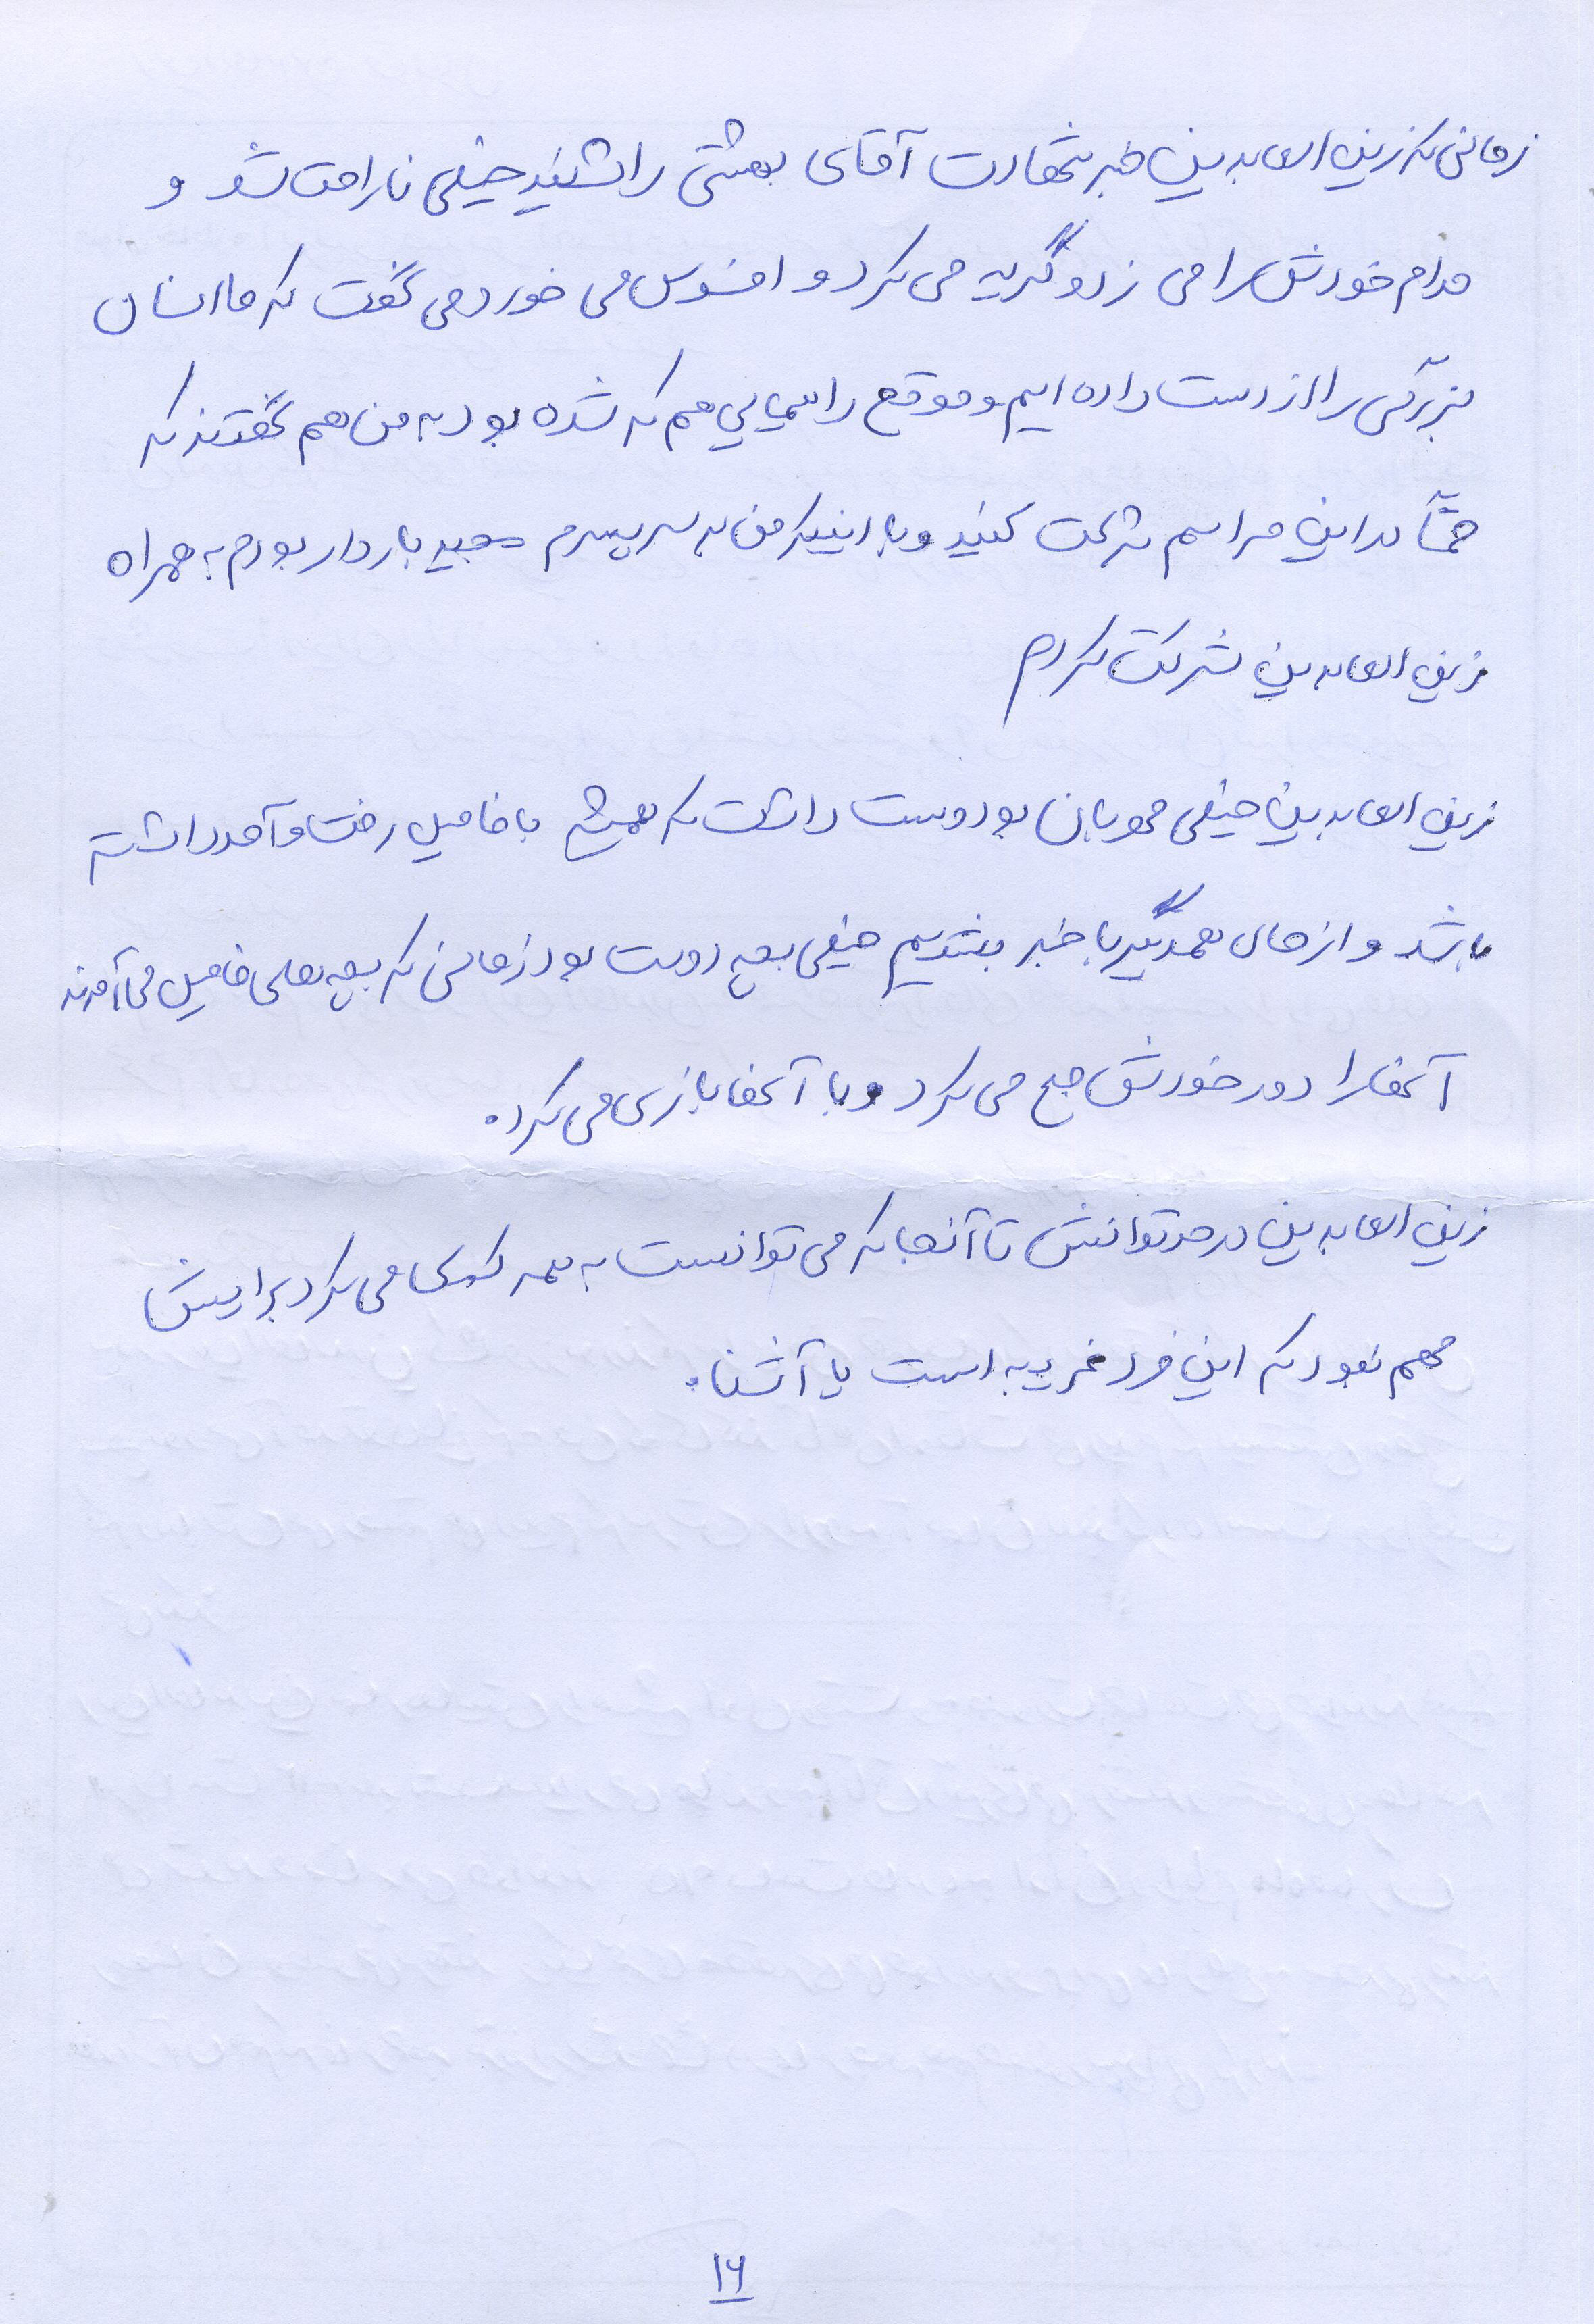 زمانی که زین العابدین خبر شهادت آقای بهشتی را شنید خیلی ناراحت شد و
مدام خودش را می زد و گریه می کرد و افسوس می خورد می گفت که ما انسان
بزرگی را از دست داده ایم و موقع راهپمایی هم که شده بود به من هم گفتند که
حتماً در این مراسم شرکت کنید و با اینکه من به سر پسرم باردار بودم به همراه
زین العابدین شرکت کردم
زین العابدین خیلی مهربان بود دوست داشت که همیشه با فامیل رفت و آمد داشته
باشد و از حال همدیگر با خبر بشدیم خیلی بچه دوست بود زمانی که بچه های فامیل می آمدند
آنها را دور خودش جمع می کرد و با آنها بازی می کرد.
زین العابدین در حد توانش تا آنجا که می توانست به همه کمک می کرد برایش
مهم نبود که این فرد غریبه است یا آشنا.
۱۶